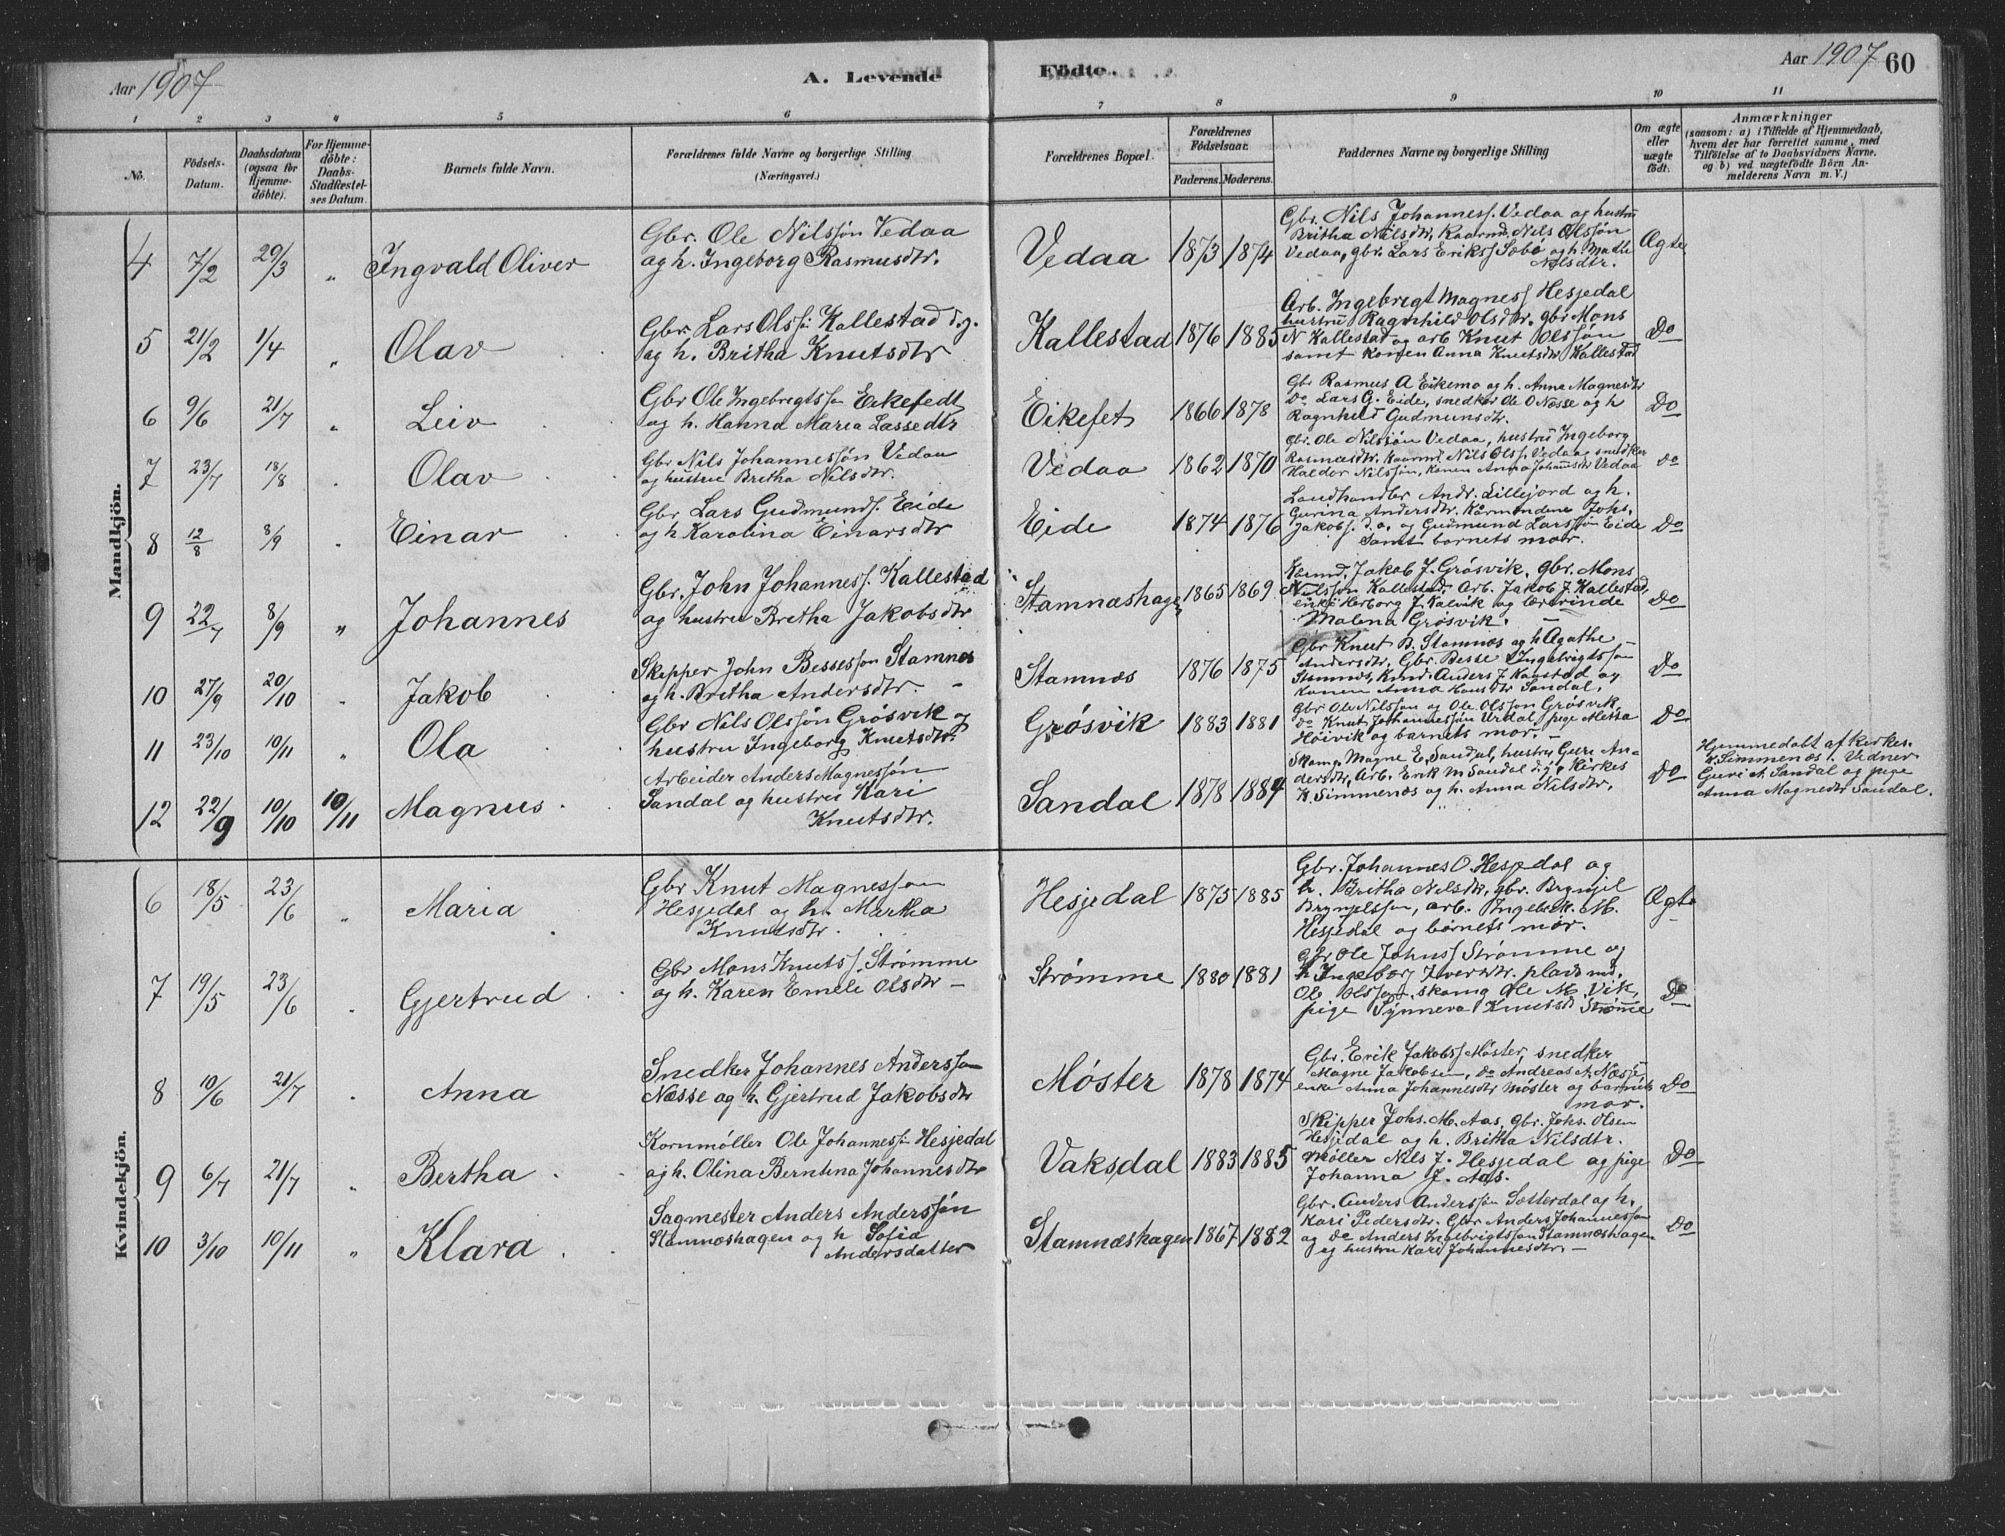 Aar 1907 A. Levende Födte. Aar 1907 60
1 2 3 4 5 6 7 8 9 10 11
No.
Födsels-
Datum.
Daabsdatum
(ogsaa for
Hjemme-
döbte).
For Hjemme-
döbte:
Daabs-
Stadfæstel-
ses Datum.
Barnets fulde Navn.
Forældrenes fulde Navne og borgerlige Stilling
(Næringsvei.)
Forældrenes Bopæl.
Forældrenes
Födselsaar.
Faderens. Moderens.
Faddernes Navne og borgerlige Stilling
Om ægte
eller
uægte
födt.
Anmærkninger
(saasom: a) i Tilfælde af Hjemmedaab,
hvem der har forrettet samme, med
Tilföielse af to Daabsvidners Navne.
og b) ved uægtefödte Börn An-
melderens Navn m. V.)
Mandkjön.
4 7/2 29/3 " Ingvald Oliver
Gbr. Ole Nilssön Vedaa
og h. Ingeborg Rasmusdtr.
Vedaa 1873 1874
Gbr. Nils Johanness. Vedaa og hustru
Britha Nilsdtr, Kaarmd. Nils Olssön
Vedaa, gbr. Lars Erikss Sæbø og h. Mathe
Nilsdtr.
Ægte
5 21/2 1/4 " Olav
Gbr. Lars Olss. Kallestad d.y.
og h. Britha Knutsdtr
Kallestad 1876 1885
Arb. Ingebrigt Magness Hesjedal
hustru Ragnhild Olsdtr. gbr Mons
N Kallestad og arb Knut Olssön
samt konen Anna Knutsdtr Kallestad
Do
6 9/6 21/7 " Leiv
Gbr Ole Ingebrigtssøn Eikefedt
og h. Hanna Maria Lassedtr
Eikefet 1866 1878
Gbr Rasmus A Eikemo og h. Anna Magnesdtr
Do Lars G. Eide, snedker Ole O Næsse og h
Ragnhild Gudmunsdtr.
Do
7 23/7 18/8 " Olav
Gbr Nils Johannessøn Vedaa
og hustru Britha Nilsdtr.
Vedaa 1862 1870
Gbr. Ole Nilssön Vedaa, hustru Ingeborg
Rasmusdtr. Kaarmd Nils Olss. Vedaa, snedker
Haldor Nilssön, Konen Anna Johannsdtr Vedaa
Do
8 12/8 8/9 " Einar
Gbr Lars Gudmunds. Eide
og h Karolina Einarsdtr
Eide 1874 1876
Landhandler Andr. Lillejord og h.
Gurina Andersdtr. Kårmændene Johs.
Jakobs. d.æ. og Gudmund Larssøn Eide
Samt barnets mor.
Do
9 22/7 8/9 " Johannes
Gbr. John Johanness. Kallestad
og hustru Bretha Jakobsdtr
Stamnæshagen 1865 1869
Kaarmd. Jakob J. Grøsvik, gbr. Mons
Nilsson Kallestad, Arb. Jakob J. Kallestad,
enke Herborg J. Kalvik og lærerinde
Malena Grøsvik.
Do
10 27/9 20/10 " Jakob
Skipper John Bessesson Stamnes
og h. Bretha Andersdtr.
Stamnæs 1876 1875
Gbr Knut B. Stamnæs og h Agathe
Andersdtr. Gbr. Besse Ingebrigtsson
Stamnæs, Anders J Kaastad og
Konen Anna Hansdtr Sandal.
Do
11 23/10 10/11 " Ola
Gbr Nils Olssøn Grøsvik og
hustru Ingeborg Knutsdtr.
Grøsvik 1883 1881
Gbr Ole Nilsson og Ole Olsson Grøsvik,
Do Knut Johannessøn Urdal, pige Metta
Høivik og barnets mor.
Do
12 22/9 10/10 10/11 Magnus
Arbeider Anders Magnessøn
Sandal og hustru Kari
Knutsdtr.
Sandal 1878 1884
Skomg. Magne E. Sandal, hustru Guri An-
dersdtr, Arb. Erik M Sandal d.y., Kirkes
K. Simmenæs og h. Anna Nilsdtr.
Do
Hjemmedøbt af Kirkes.
K. Simmenæs. Vidner
Guri A. Sandal og pige
Anna Magnedtr Sandal.
Kvindekjön.
6 18/5 23/6 " Maria
Gbr Knut Magnesson
Hesjedal og h. Martha
Knutsdtr.
Hesjedal 1875 1885
Gbr. Johannes O Hesjedal og
h. Britha Nilsdtr, gbr. Brynjel
Brynjelsson, arb. Ingebr. M.
Hesjedal og børnets mor.
Ægte
7 19/5 23/6 " Gjertrud
Gbr Mons Knuts. Strømme
og h. Karen Emele Olsdtr
Strømme 1880 1881
Gbr Ole Johns Strømme og
h Ingeborg Iversdtr. pladsmd.
Ole Olsson, skomg Ole M. Vik,
pige Synneva Knutsd. Strømme
Do
8 10/6 21/7 " Anna
Snedker Johannes Andersson
Næsse og h. Gjertrud Jakobsdtr
Møster 1878 1874
Gbr. Erik Jakobss Møster, snedker
Magne Jakobsen, Do Andreas A. Næsse,
enke Anna Johannesdtr Møster og barnets
mor.
Do
9 6/7 21/7 " Bertha
Kornmøller Ole Johannessøn Hesjedal
og h. Olina Berntina Johannesdtr
Vaksdal 1883 1885
Skipper Johs. M. Aas, gbr. Johs. Olsen
Hesjedal og h. Britha Nilsdtr.
Møller Nils J. Hesjedal og pige
Johanna J. Aas.
Do
10 3/10 10/11 " Klara
Sagmester Anders Anderssøn
Stamnæshagen og h Sofia
Andersdatter
Stamnæshagen 1867 1882
Gbr. Anders Anderssøn Sætterdal og h.
Kari Pedersdtr. Gbr Anders Johannesson
og Do Anders Ingebrigtsson Stamnæshagen
og hustru Kari Johannesdtr.
Do